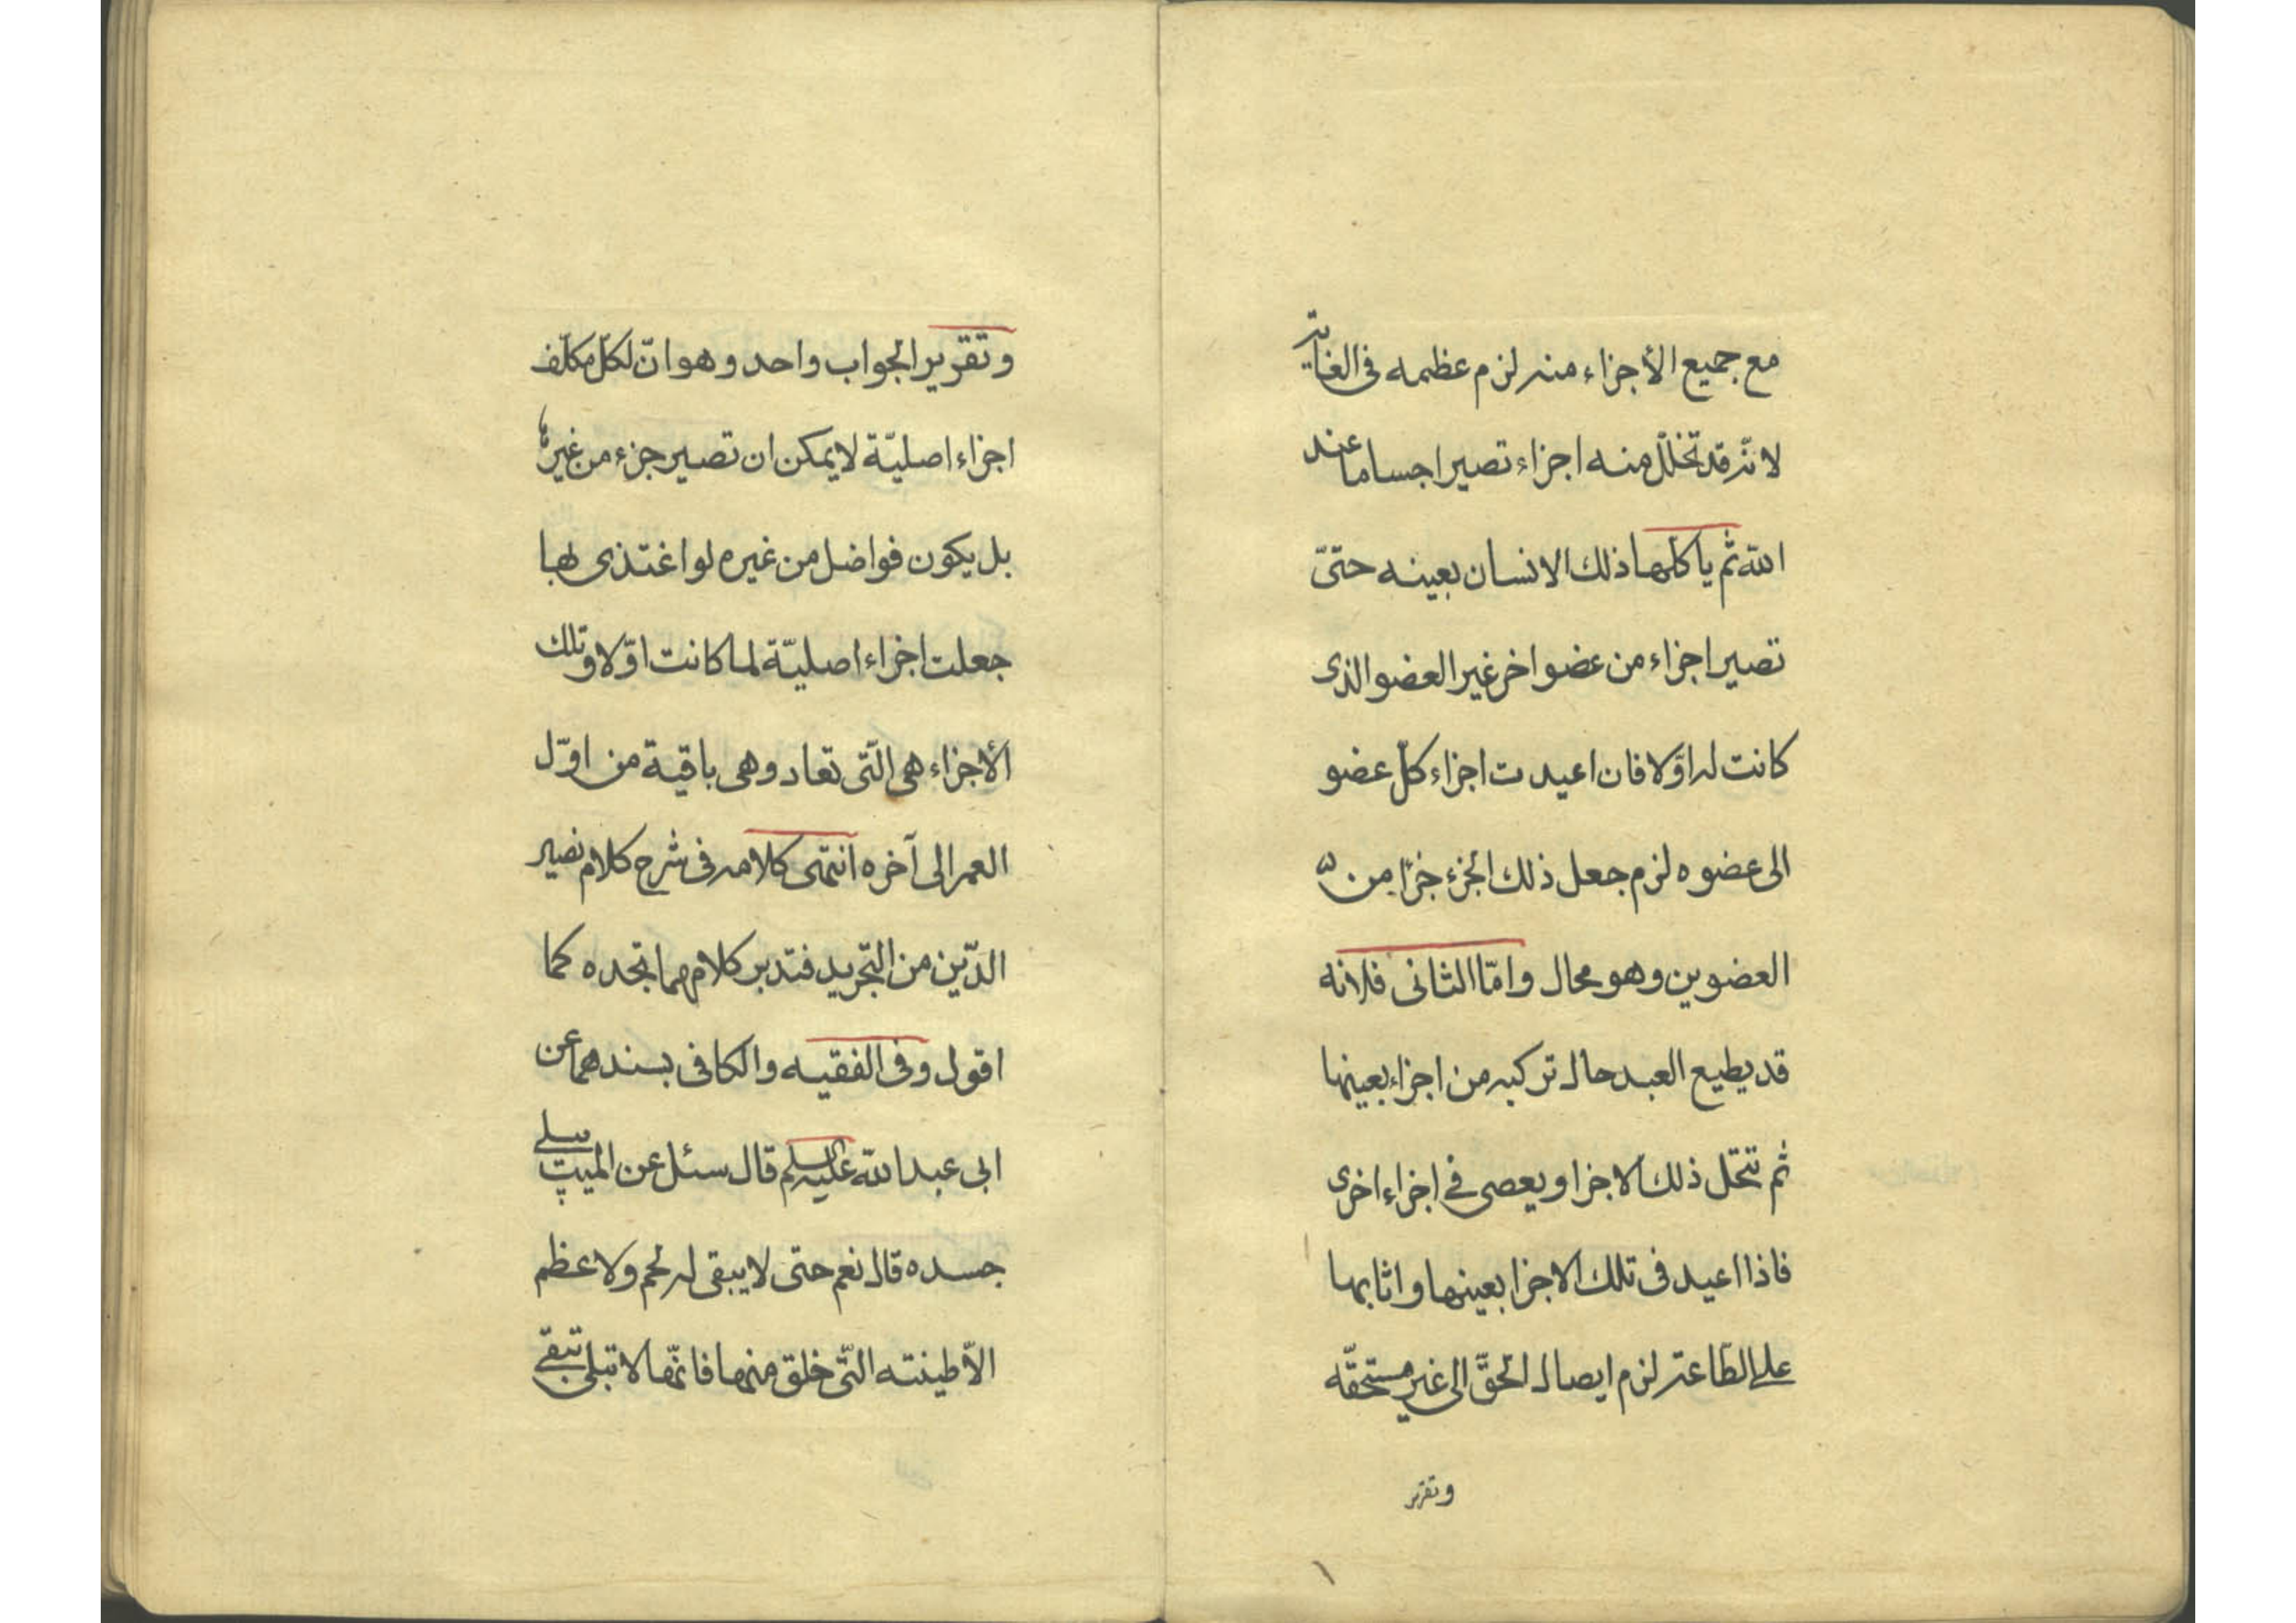 مع جميع الأجزاء منه لزم عظمه فى الغاية
لانّه قد تخلّل منه اجزاء تصير اجساما عند
الله ثم ياكلها ذلك الانسان بعينه حتىّ
تصير اجزاء من عضو اخر غير العضو الذى
كانت له اوّلا فان اعيدت اجزاء كلّ عضو
الى عضوه لزم جعل ذلك الجزء جزأ من
العضوين وهو محال وامّا الثانى فلانه
قد يطيع العبد حال تركبه من اجزاء بعينها
ثم تتحّل ذلك الاجزا ويعصى فى اجزاء اخرى
فاذا اعيد فى تلك الاجزا بعينها واثابها
على الطّاعة لزم ايصال الحقّ الى غير مستحقّه
وتقرير
وتقرير الجواب واحد وهو انّ لكلّ مكلّف
اجزاء اصليّة لا يمكن ان تصير جزء من غيره
بل يكون فواضل من غيره لو اغتذى بها
جعلت اجزاء اصليّة لما كانت اوّلا وتلك
الأجزاء هى الّتى تعاد وهى باقية من اوّل
العمر الى آخره انتهى كلامه فى شرح كلام نصير
الدّين من التجريد فتدبر كلامهما تجده كما
اقول وفى الفقيه والكافى بسندهما عن
ابى عبد الله عليه السلم قال سئل عن الميت يبلى
جسده قال نعم حتى لا يبقى له لحم ولا عظم
الاّ طينته الّتى خلق منها فانّها لا تبلى تبقى